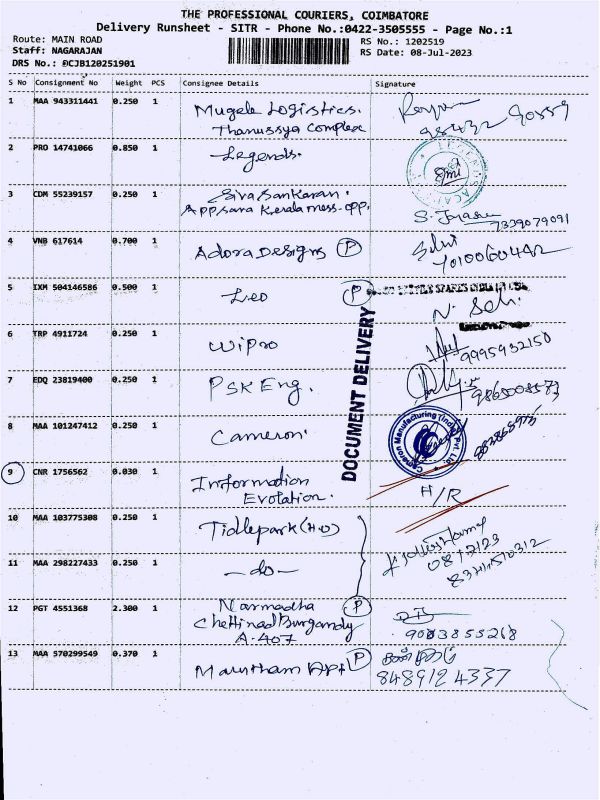 THE PROFESSIONAL COURIERS, COIMBATORE
Delivery Runsheet - SITR - Phone No.:0422-3505555 - Page No.:1
Route: MAIN ROAD
RS No.: 1202519
Staff: NAGARAJAN
RS Date: 08-Jul-2023
DRS No.: DCJB120251901
S No Consignment No Weight PCS Consignee Details Signature
1 MAA 943311441 0.250 1 Mugele Logistics.
Thanussya Complex
98432 90559
2 PRO 14741066 0.850 1 Legends.
3 CDM 55239157 0.250 1 Siva Sankaran.
Appsara Kerala mess-opp.
7339079091
4 VNB 617614 0.700 1 Adora Designs P
Selvi
5 IXM 504146586 0.500 1 Leo P
DOCUMENT DELIVERY
6 TRP 4911724 0.250 1 Wipro
9995932150
7 EDQ 23819400 0.250 1 PSK Eng.
8 MAA 101247412 0.250 1 Cameron.
Cameron Manufacturing (India) Pvt. Ltd
9 CNR 1756562 0.030 1 Information
Evolation.
H/R
10 MAA 103775308 0.250 1 Tidlepark (H.O)
11 MAA 298227433 0.250 1 -do-
12 PGT 4551368 2.300 1 Narmadha P
Chettinad Burgandy
A-407
9003855268
13 MAA 570299549 0.370 1 Marutham Apt P
8489124337